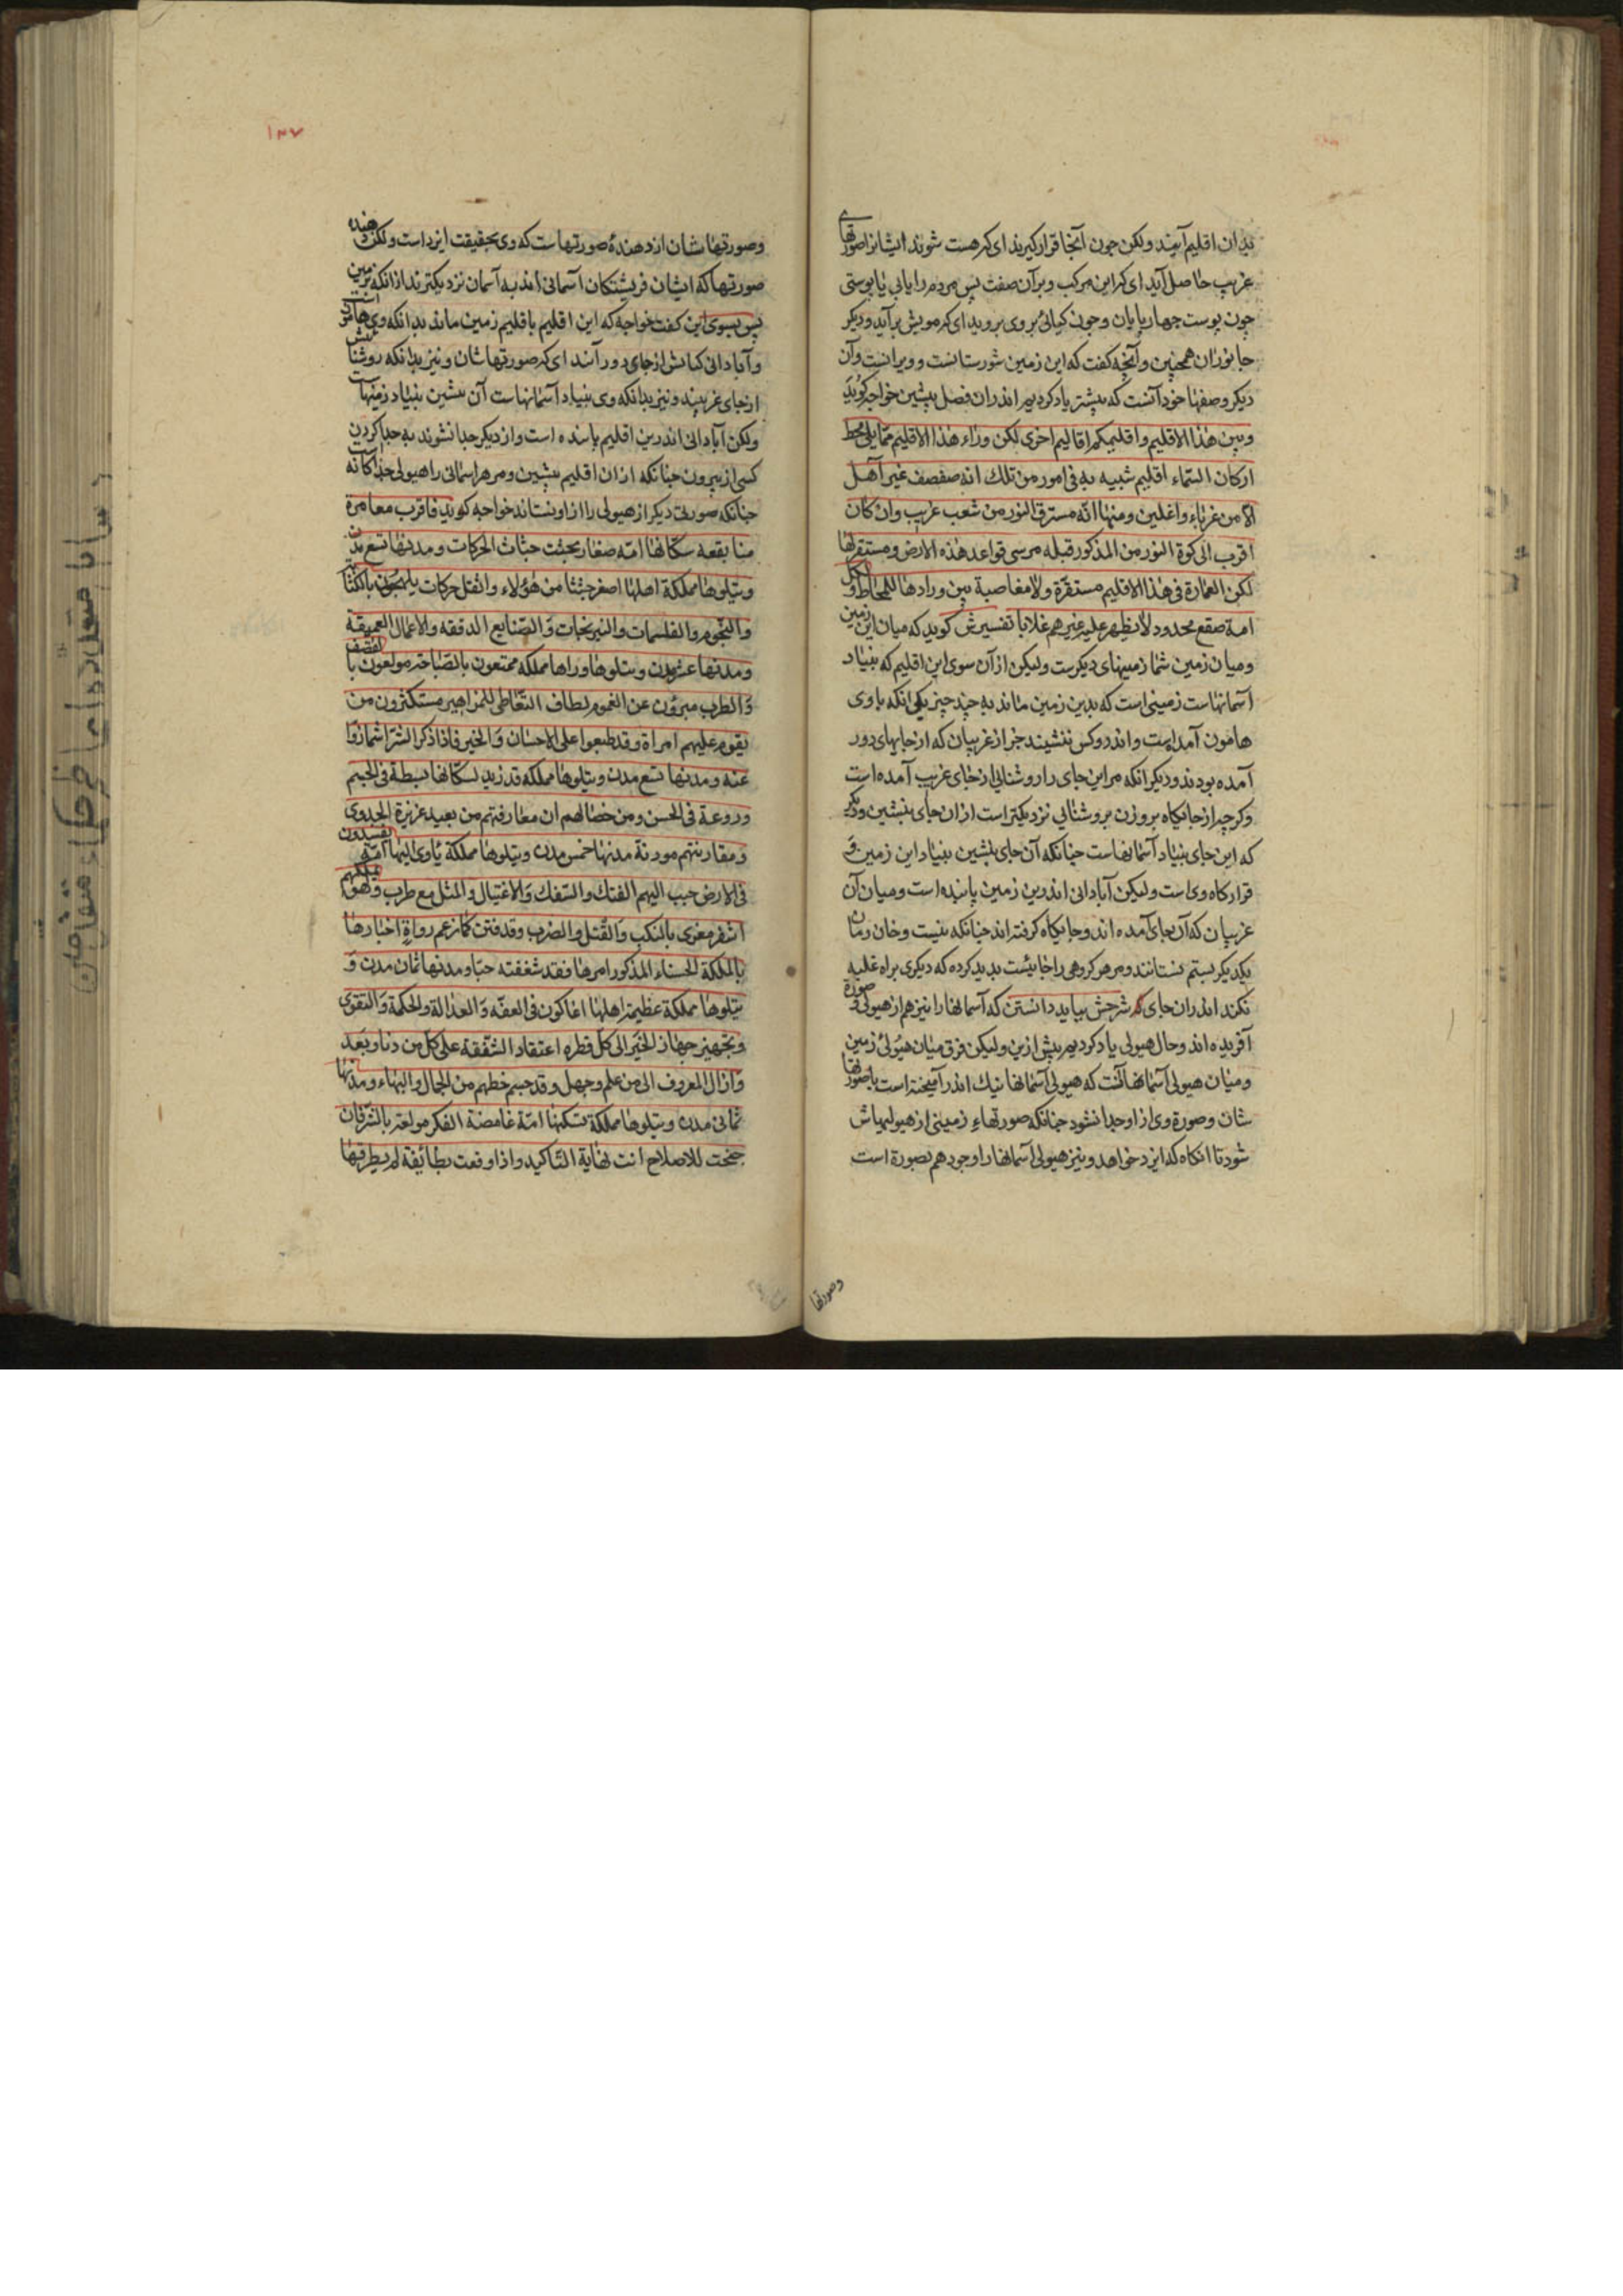 بدان اقلیم آیند ولکن چون آنجا قرار کیرند ای که هست شوند ایشانرا صورتهای
غریب حاصل آید ای که این مرکب وبرآن صفت پس مردم را یابی یا پوستی
چون پوست چهارپایان وچون کیائی بروی بروید ای که مویش برآید ودیکر
جانوران همچنین وآنچه کفت که این زمین شورستانست وویرانست وآن
دیکر وصفها خود آنست که پیشتر یاد کردیم اندران فصل پیشین خواجه کوید
وبین هذا الاقلیم واقلیمکم اقالیم اخری لکن وراء هذا الاقلیم مما یلی محط
ارکان السماء اقلیم شبیه به فی امور من تلک انه صفصف غیر آهل
الا من غرباء واغلین ومنها انه مسترق النور من شعب غریب وان کان
اقرب الی کوة النور من المذکور قبله مرسی قواعد هذه الارض ومستقر لها
لکن العمارة فی هذا الاقلیم مستقرة ولا مغاصبة بین ورادها للمحاط ولکل
امة صقع محدود لا یظهر علیه غیرهم غلابا تفسیرش کوید که میان این زمین
ومیان زمین شما زمینهای دیکرست ولیکن از آن سوی این اقلیم که بنیاد
آسمانهاست زمینی است که بدین زمین ماند به چند چیز یکی انکه با وی
هامون آمداست واندرو کس ننشیند جز از غریبان که از جایهای دور
آمده بودند ودیکر انکه مر این جای را روشنایی از جای غریب آمده است
وکرچه از جایکاه بروزن بروشنایی نزدیکتر است از ان جای پیشین ودیکر
که این جای بنیاد آسمانهاست چنانکه آن جای پیشین بنیاد این زمین و
قرارکاه وی است ولیکن آبادانی اندرین زمین پاینده است ومیان آن
غریبان که آن جای آمده اند وجایکاه کرفته اند چنانکه نیست وخان ومان
یکدیکر بستم نستانند ومر هر کروهی را جائیست پدید کرده که دیکری براه غلبه
نکند اندران جای که شرحش بباید دانستن که آسمانها را نیز هم از هیولی وصورة
آفریده اند وحال هیولی یاد کردیم پیش ازین ولیکن فرق میان هیولی زمین
ومیان هیولی آسمانها آنست که هیولی آسمانها نیک اندر آمیخته است باصورتها
شان وصورة وی از او جدا نشود چنانکه صورتهاء زمینی از هیولیهاش
شود تا انکاه که ایزد خواهد ونیز هیولی آسمانها را وجود هم بصورة است
وصورتها
۱۳۷
وصورتهاشان از دهندهٔ صورتهاست که وی بحقیقت ایزد است ولکن دهنده
صورتها که ایشان فریشتکان آسمانی اند به آسمان نزدیکترند از انکه بزمین
پس بسوی این کفت خواجه که این اقلیم باقلیم زمین ماند بدانکه وی هامونست
وآبادانی کنانش از جای دور آمدند ای که صورتهاشان ونیز بدانکه روشنائیش
از جای غریبند ونیز بدانکه وی بنیاد آسمانهاست آن پیشین بنیاد زمینهاست
ولکن آبادانی اندرین اقلیم پاینده است واز دیکر جدا نشوند به جدا کردن
کسی از بیرون چنانکه از ان اقلیم پیشین ومر هر آسمانی را هیولی جداکانه
چنانکه صورتی دیکر از هیولی را از او نستاند خواجه کوید فاقرب معامرة
منا بقعة سکانها امة صغار یجثث حثاث الحرکات ومدنها تسع مدن
ویتلوها مملکة اهلها اصغر جثثا من هؤلاء واثقل حرکات یلهجون بالکتابة
والنجوم والطلسمات والنیرنجات والصنایع الدقیقة والاعمال العمیقة
ومدنها عشر مدن ویتلوها وراها مملکة ممتعون بالصباحة مولعون بالقصف
والطرب مبرؤن عن الغموم لطاف التعاطی للمزاهیر مستکثرون من
یقوم علیهم امراة وقد طبعوا علی الاحسان والخیر فاذا ذکر الشر اشمازوا
عنه ومدنها تسع مدن ویتلوها مملکة قد زید لسکانها بسطة فی الجسم
وروعة فی الحسن ومن خصالهم ان مفارقتهم من بعید عزیزة الجدوی
ومقاربتهم موذیة مدنها خمس مدن ویتلوها مملکة یاوی الیها امة یفسدون
فی الارض حبب الیهم الفتک والسفک والاغتیال والمثل مع طرب ولهو یملکهم
اشقر مغری بالنکب والقتل والضرب وقد فتن کما زعم رواة اخبارها
بالملکة الحسناء المذکور امرها فقد شغفته حبا ومدنها ثمان مدن و
یتلوها مملکة عظیمة اهلها اغاکون فی العفة والعدالة والحکمة والتقوی
وتجهیز جهاز الخیر الی کل قطره اعتقاد الشفقة علی کل من دنا وبعد
وانزال المعروف الی من علم وجهل وقد جسم حظهم من الجمال والبهاء ومدنها
ثمانی مدن ویتلوها مملکة تسکنها امة غامضة الفکر مولعة بالشر فان
جنحت للاصلاح اتت نهایة التاکید واذا وقعت بطائفة لم یطرقها